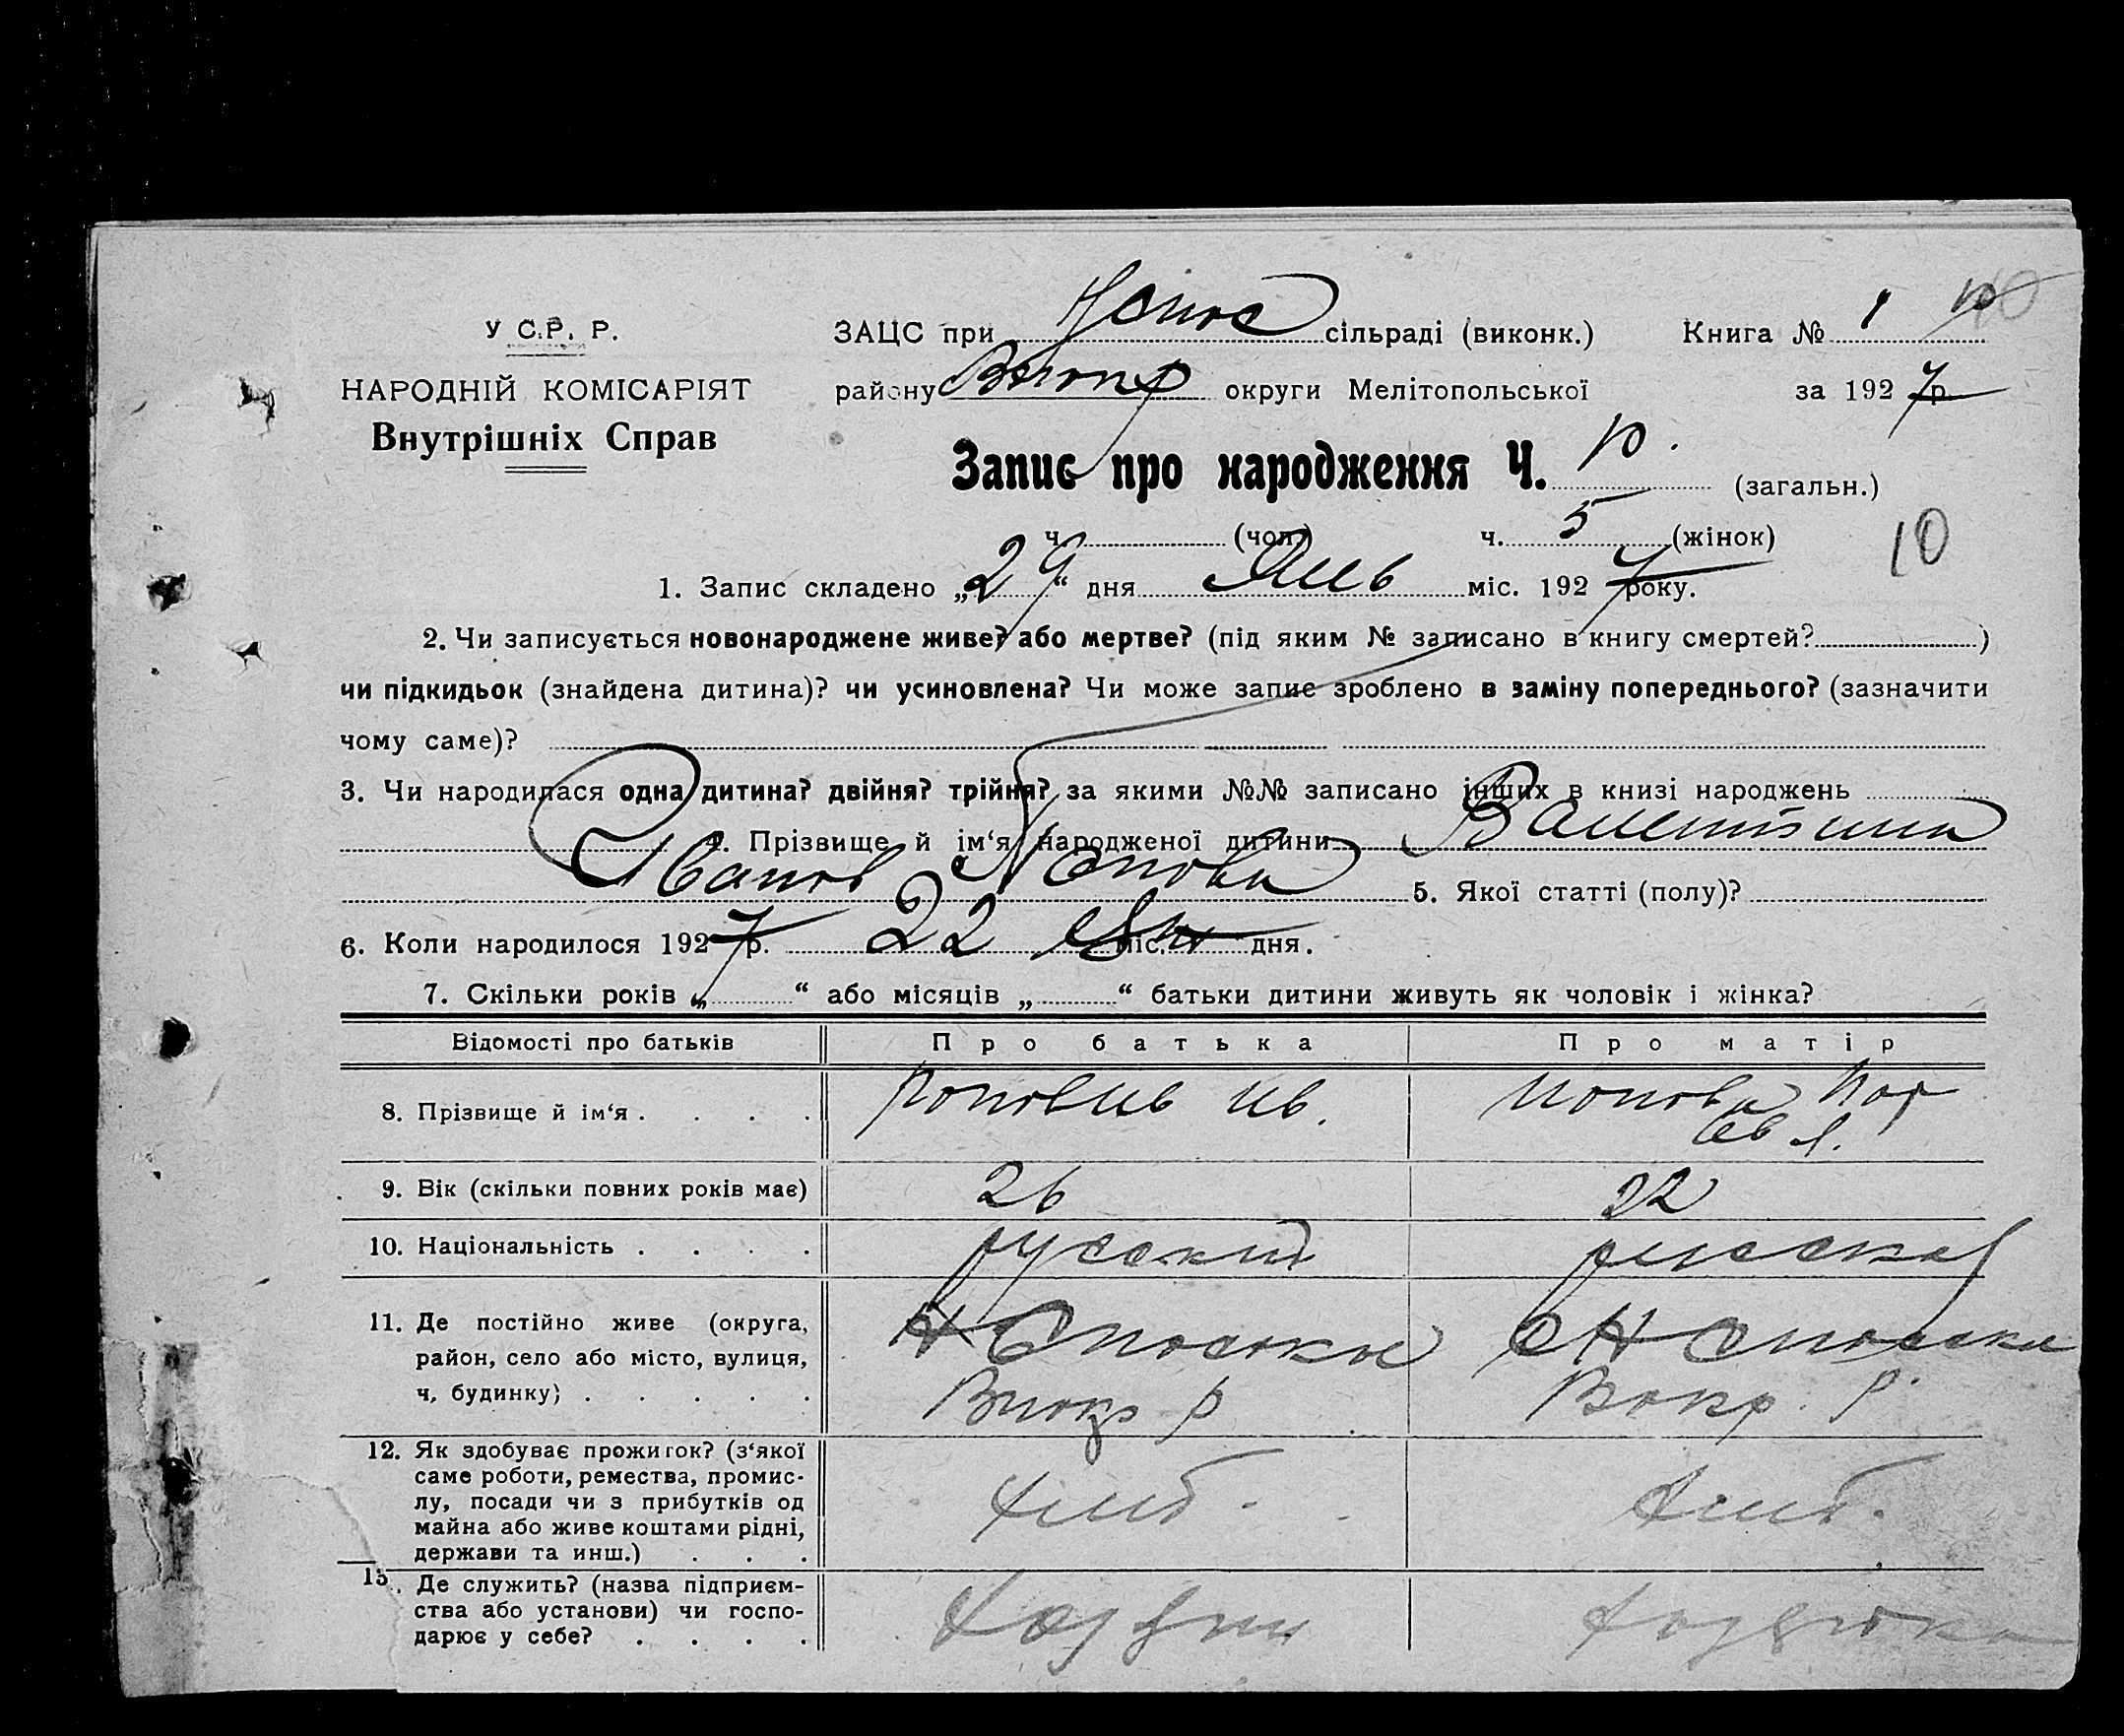 У С.Р. Р.
НАРОДНІЙ КОМІСАРІЯТ
Внутрішніх Справ
ЗАЦС при сільраді (виконк.) Книга № 1 10
району округи Мелітопольської за 1927 р.
Запис про народження Ч. 10. (загальн.)
ч. (чол.) ч. 5 (жінок) 10
1. Запис складено „29“ дня Янв міс. 1927 року.
2. Чи записується новонароджене живе? або мертве? (під яким № записано в книгу смертей? )
чи підкидьок (знайдена дитина)? чи усиновлена? Чи може запис зроблено в заміну попереднього? (зазначити
чому саме)?
3. Чи народилася одна дитина? двійня? трійня? за якими №№ записано інших в книзі народжень
4. Прізвище й ім‘я народженої дитини Валентина
Иванов Попова 5. Якої статті (полу)?
6. Коли народилося 1927 р. 22 міс. дня.
7. Скільки років „ “ або місяців „ “ батьки дитини живуть як чоловік і жінка?
Відомості про батьків Про батька Про матір
8. Прізвище й ім‘я . . . . Попов Ив. Попова
9. Вік (скільки повних років має) 26 22
10. Національність . . . . русский русская
11. Де постійно живе (округа,
район, село або місто, вулиця,
ч. будинку) . . . . .
Н Спасское С Н Спасска
р Вокр. р.
12. Як здобуває прожиток? (з‘якої
саме роботи, ремества, промис-
лу, посади чи з прибутків од
майна або живе коштами рідні,
держави та инш.) . . .
хлиб. хлиб.
13. Де служить? (назва підприєм-
ства або установи) чи госпо-
дарює у себе? . . . .
Хозяин хозяйка